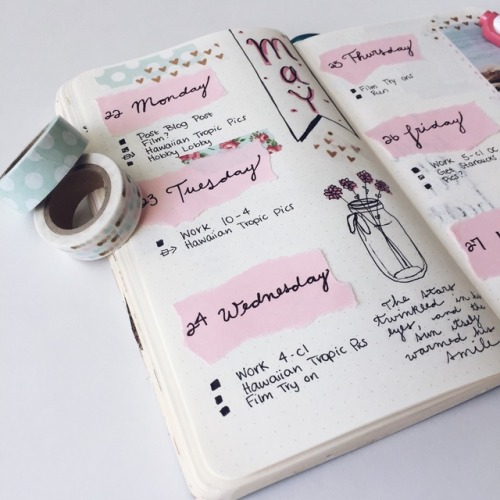 May
22 Monday
Post Blog Post
Film?
Hawaiian Tropic Pics
Hobby Lobby
23 Tuesday
Work 10-4
Hawaiian Tropic Pics
24 Wednesday
Work 4-cl
Hawaiian Tropic Pics
Film Try on
25 Thursday
Film Try ons
Run
26 friday
Work 5-cl DC
Get Starbucks
Pics?
27
The stars
twinkled in his
eyes, and the
sun itself
warmed his
smile